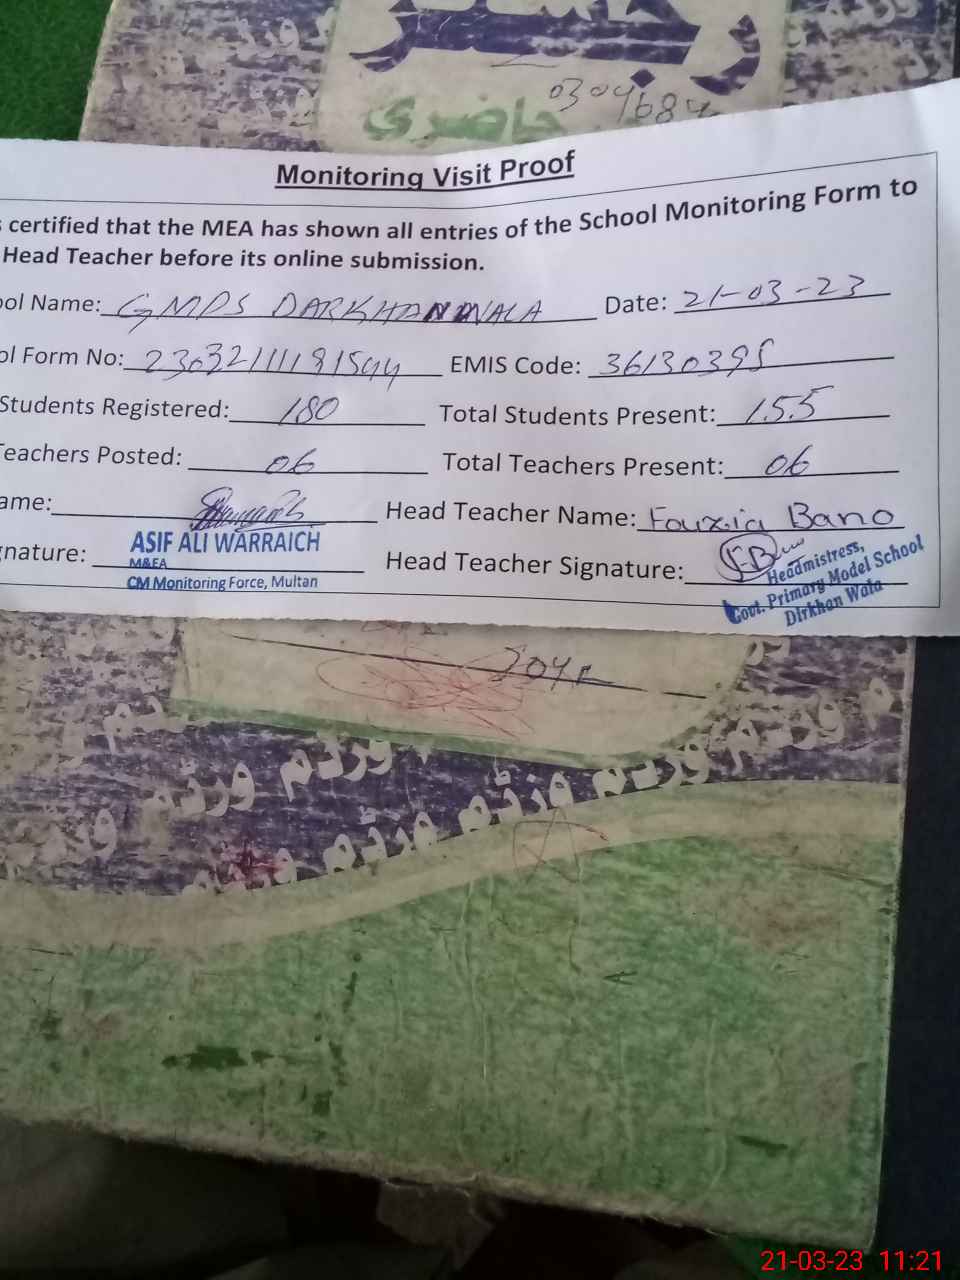 رجسٹر
حاضری
Monitoring Visit Proof
certified that the MEA has shown all entries of the School Monitoring Form to
Head Teacher before its online submission.
ool Name: GMPS DARKHANWALA Date: 21-03-23
ol Form No: EMIS Code: 36130395
Students Registered: 180 Total Students Present: 155
Teachers Posted: 06 Total Teachers Present: 06
ame: Head Teacher Name: Fouxia Bano
gnature: ASIF ALI WARRAICH Head Teacher Signature:
M&EA
CM Monitoring Force, Multan
Headmistress,
Govt. Primary Model School
Dirkhan Wala
ورڈم ورڈم
ورڈم ورڈم ورڈم ورڈم ورڈم
21-03-23 11:21